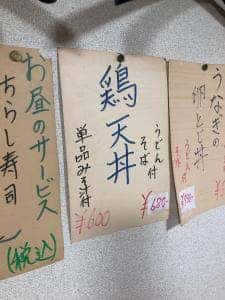 うなぎの
卵とじ丼
鶏天丼
うどん付
そば
¥680-
単品みそ付
¥600
お昼のサービス
(税込)
ちらし寿司